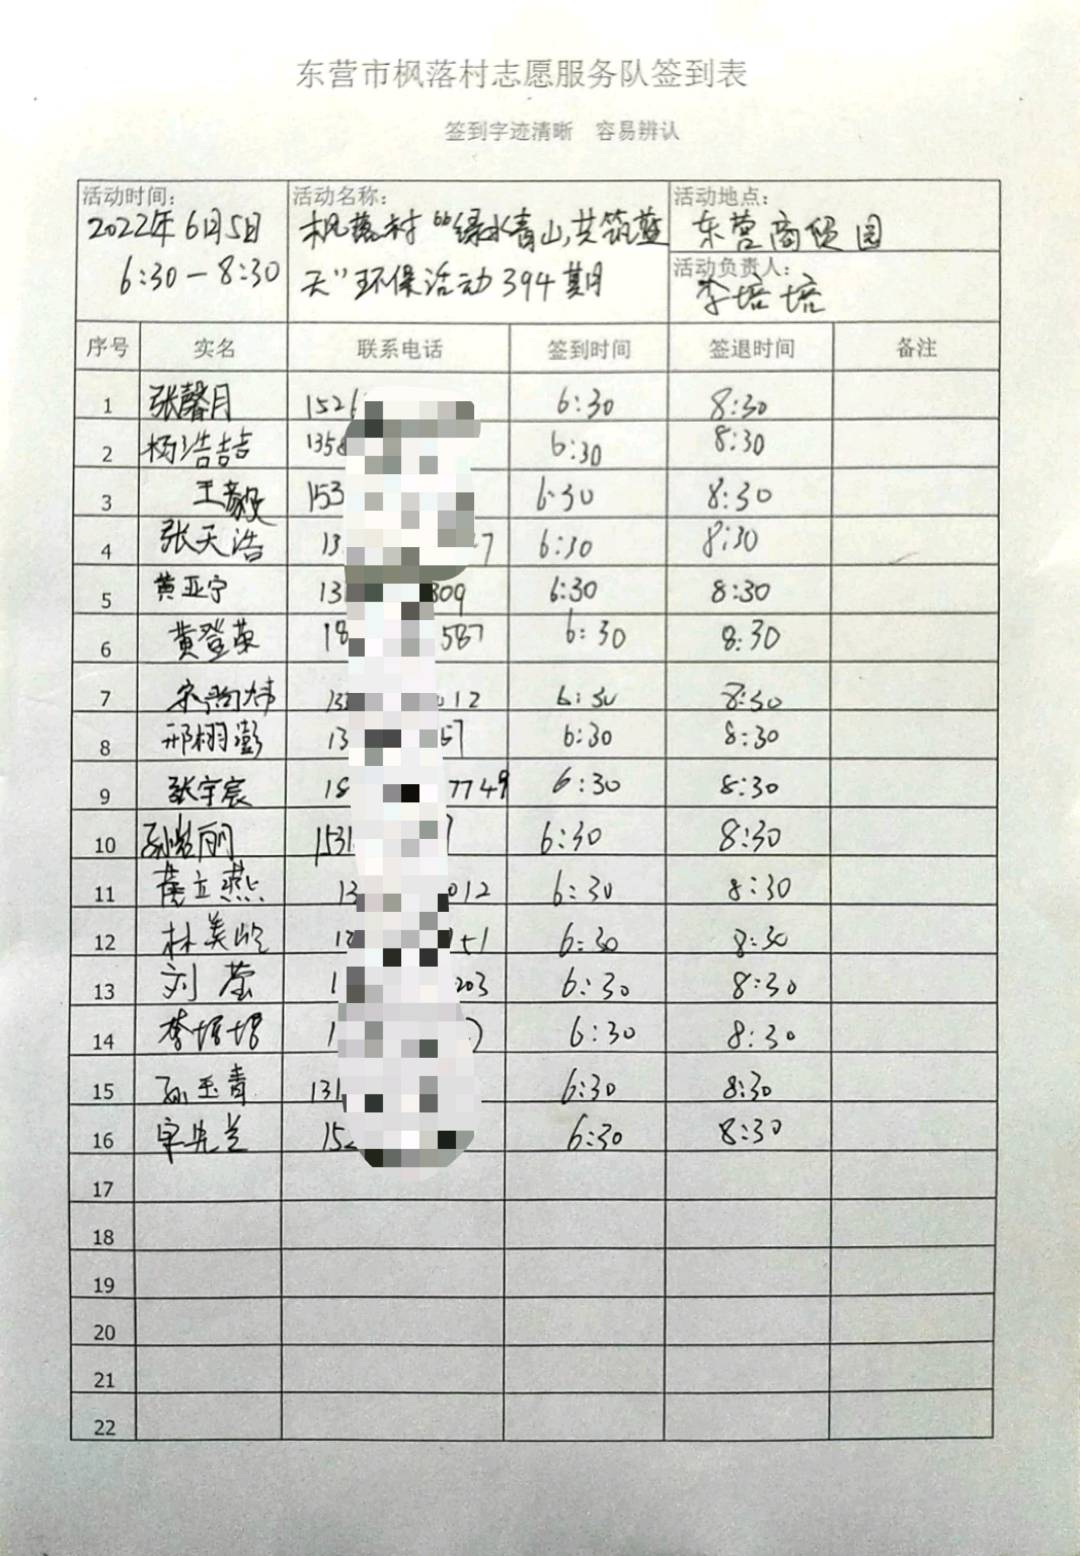 东营市枫落村志愿服务队签到表
签到字迹清晰 容易辨认
活动时间: 活动名称: 活动地点:
2022年6月5日 枫落村“绿水青山,共筑蓝 东营商贸园
6:30-8:30 天”环保活动394期 活动负责人:
李培培
序号 实名 联系电话 签到时间 签退时间 备注
1 张馨月 1526 6:30 8:30
2 杨浩喆 1358 6:30 8:30
3 王毅 153 6:30 8:30
4 张天浩 13 7 6:30 8:30
5 黄亚宁 13 809 6:30 8:30
6 黄登英 18 587 6:30 8:30
7 宋尚炜 13 012 6:30 8:30
8 邢栩澎 13 57 6:30 8:30
9 张宇宸 18 7749 6:30 8:30
10 丽 1531 6:30 8:30
11 立燕 13 012 6:30 8:30
12 林美 1 51 6:30 8:30
13 刘莹 1 203 6:30 8:30
14 李培培 1 6:30 8:30
15 孙玉青 131 6:30 8:30
16 兰 152 6:30 8:30
17
18
19
20
21
22